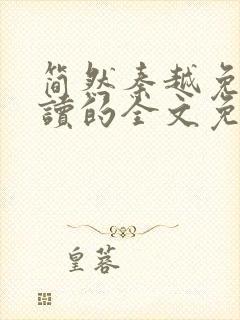 简然秦越免
讀的全文免
皇蓉